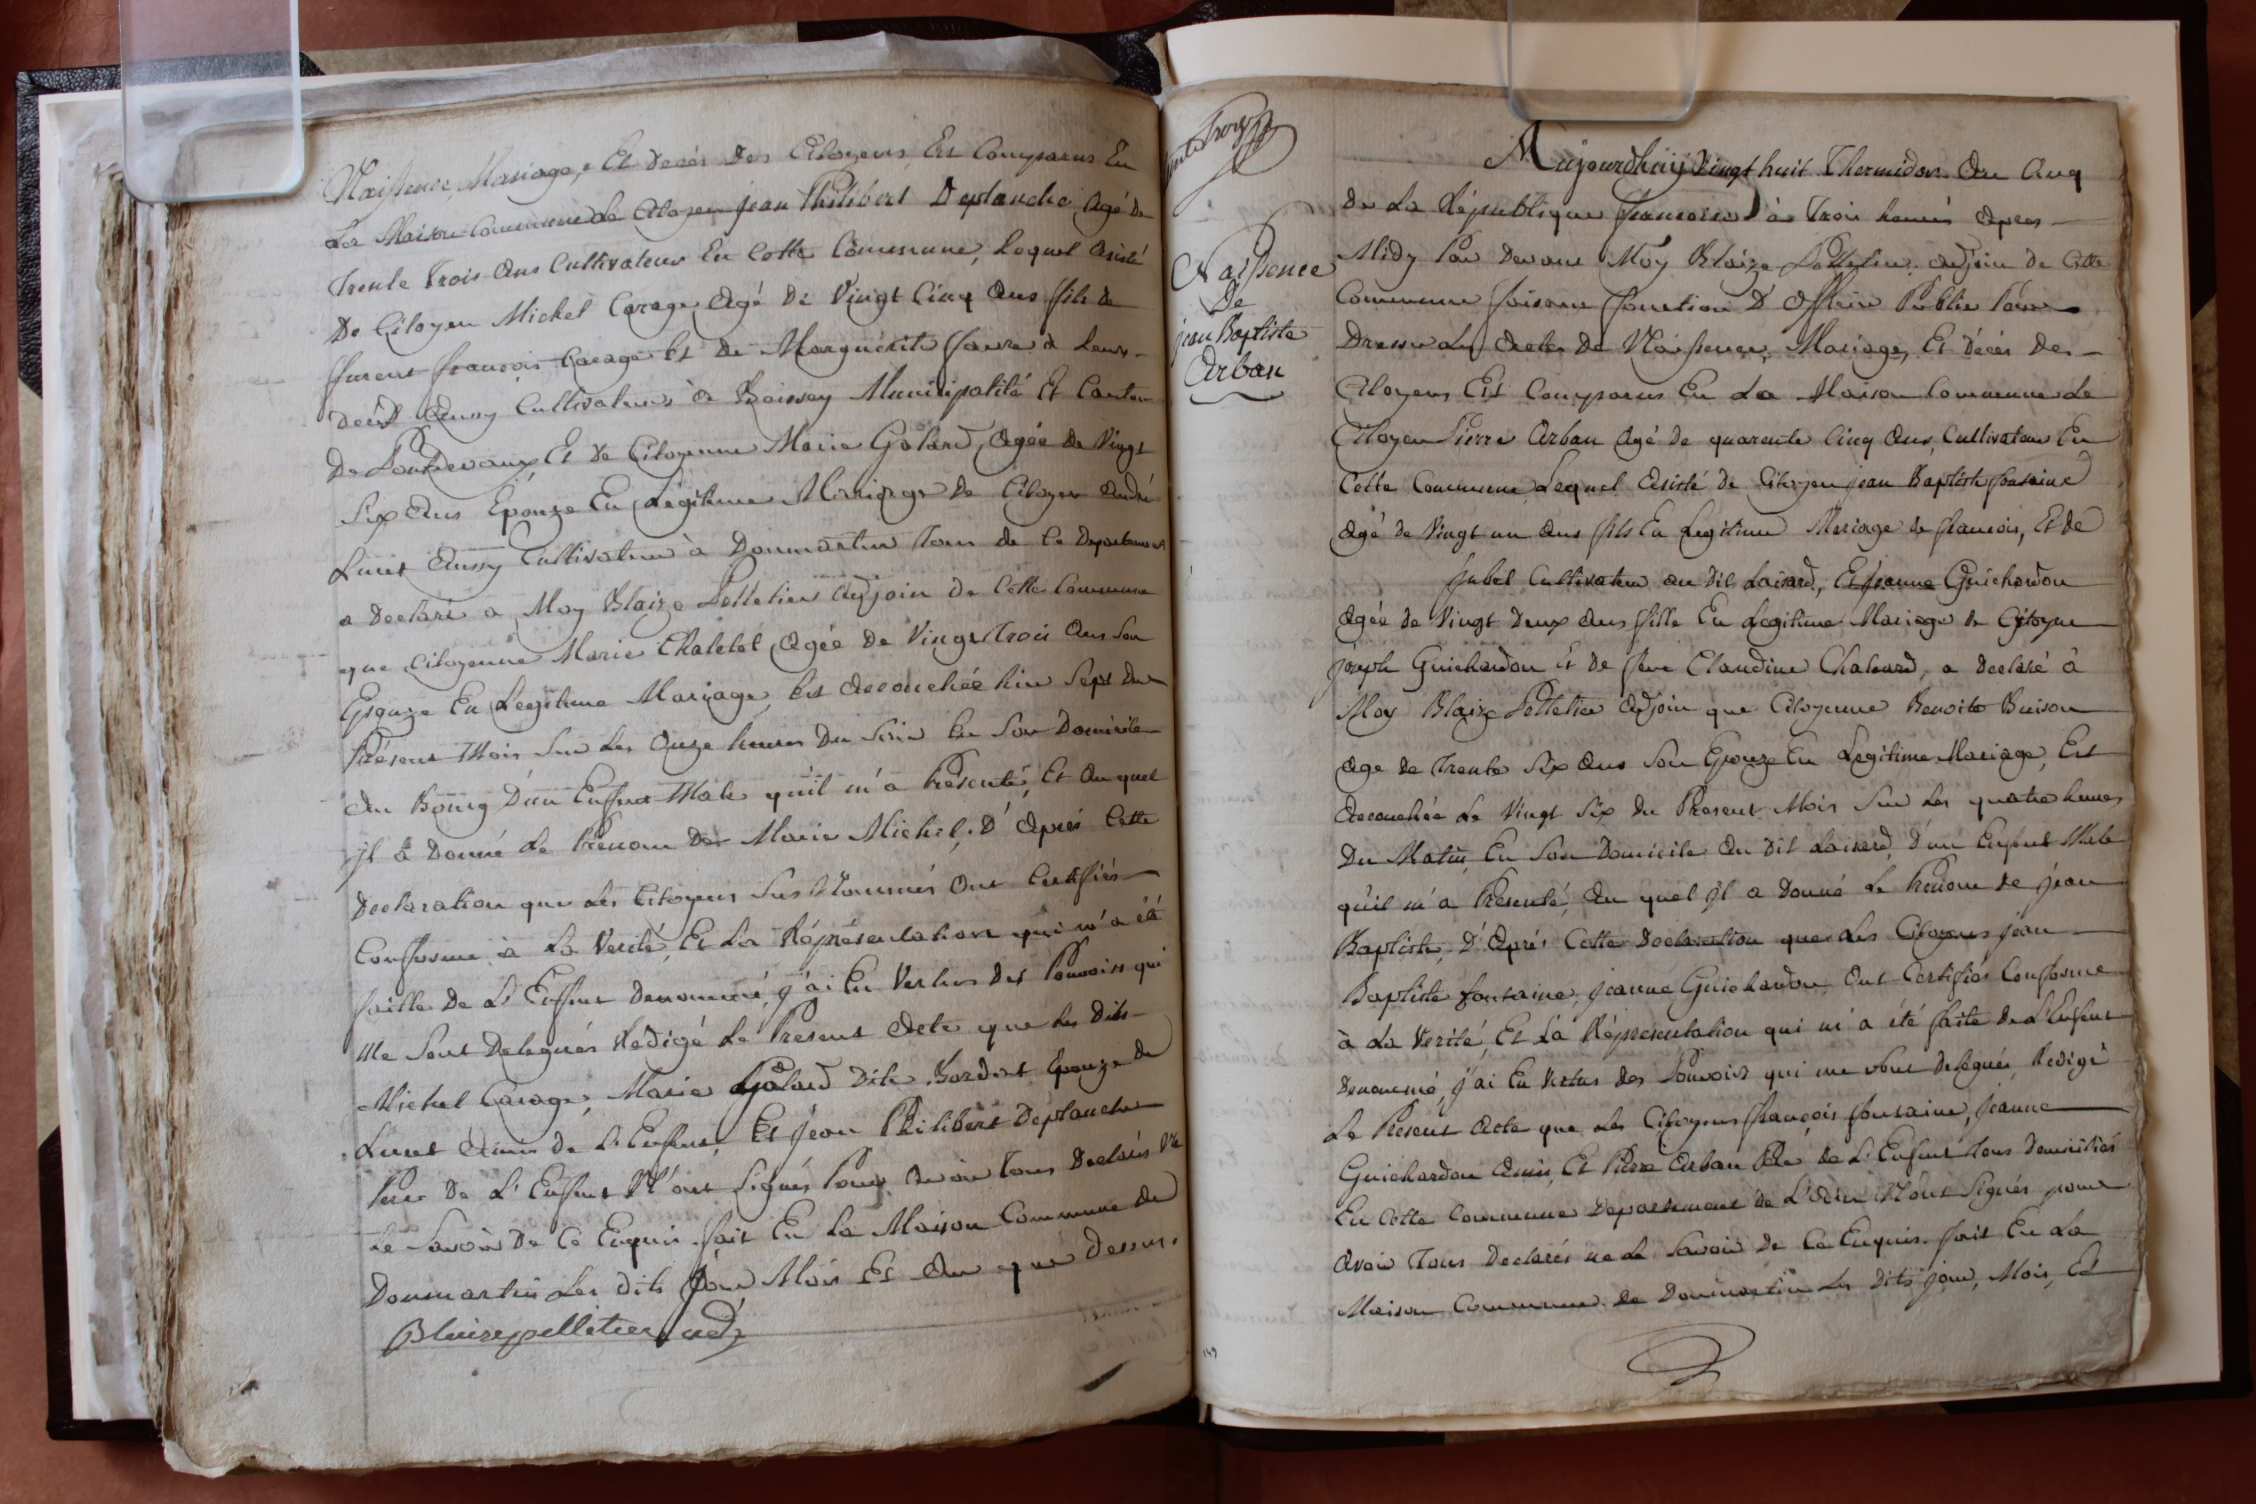 Naissence, Mariage, Et décés Des Citoyens Est Comparus En
La Maison Commune Le Citoyen jean Philibert Deplanche, Agé de
Trente Trois Ans Cultivateur En Cette Commune, Lequel Asisté
De Citoyen Michel Carage Agé De Vingt Cinq Ans fils de
François Carage Et De Marguerite faure à Leur
Décés Cultivateurs à Boissey Municipalité Et Canton
De Pondevaux, Et De Citoyenne Marie Golard, Agée De Vingt
Six Ans Epouze En Légitime Mariage De Citoyen André
Luret Aussy Cultivateur à Donmartin Tous de Ce Departement
a Declaré a Moy Blaize Pelletier Adjoin de Cette Commune
que Citoyenne Marie Chatelet Agée De Vingt Trois Ans Son
Epouze En Légitime Mariage, Est Accouchée hier Sept Du
Présent Mois Sur Les Onze heures Du Soir En Son Domicile
Au Bourg D'un Enfant Male qu'il m'a Présenté, Et Au quel
jl à Donné Le Prenom De Marie Michel, D'Aprés Cette
Declaration que Les Citoyens Sus Nommés Ont Certifiés
Conforme à La Verité, Et La Réprésentation qui m'a été
faitte De L'Enfant Denommé, j'ai En Vertus Des Pouvoirs qui
Me Sont Delegués Rédigé Le Present Acte que Les Dits
Michel Carage, Marie Golard Dite Bordat Epouze de
Luret Amis de L'Enfant, Et jean Philibert Deplanche
Pere De L'Enfant N'ont Signés Pour Avoir Tous Declarés Ne
Le Savoir De Ce Enquis. fait En La Maison Commune de
Donmartin Les Dits jour Mois Et An que Dessus.
Blaize pelletier adj
Naissence
De
jean Baptiste
Arban
Aujourdhuy Vingt huit Thermidor An Cinq
De La République francoise à Trois heures Apres
Midy Par Devant Moy Blaize Pelletier, Adjoin de Cette
Commune faisant fonction D'Officier Public Pour
Dresser Les Actes De Naissence, Mariage, Et Décés Des
Citoyens Est Comparus En La Maison Commune Le
Citoyen Pierre Arban Agé De quarente Cinq Ans, Cultivateur En
Cette Commune, Lequel Asisté de Citoyen jean Baptiste fontaine
Agé de Vingt un Ans fils En Legitime Mariage de francois, Et de
Jubel Cultivateur au Dit Loisard, Et Jeanne Guichardon
Agée de Vingt Deux Ans fille En Legitime Mariage de Citoyen
joseph Guichardon Et De feue Claudine Chatard, a Declaré à
Moy Blaize Pelletier Adjoin que Citoyenne Benoite Buison
Age de Trente Six Ans Son Epouze En Legitime Mariage, Est
Accouchée Le Vingt Six Du Present Mois Sur Les quatre heures
Du Matin En Son Domicile Au Dit Loisard, D'un Enfant Male
qu'il m'a Présenté, Au quel jl a Donné Le Prenom de jean
Baptiste, D'Aprés Cette Declaration que Les Citoyens jean
Baptiste fontaine, jeanne Guichardon Ont Certifiés Conforme
à La Verité, Et La Réprésentation qui m'a été faite De L'Enfant
Denommé, j'ai En Vertus Des Pouvoirs qui me Sont Delegués, Redigé
Le Présent Acte que Les Citoyens François fontaine, jeanne
Guichardon Amis, Et Pierre Arban Pere de L'Enfant Tous Domiciliés
En Cette Commune Département de L'Ain N'ont Signés pour
Avoir Tous Declarés ne Le Savoir De Ce Enquis. fait En La
Maison Commune De Donmartin Les Dits jour, Mois, Et